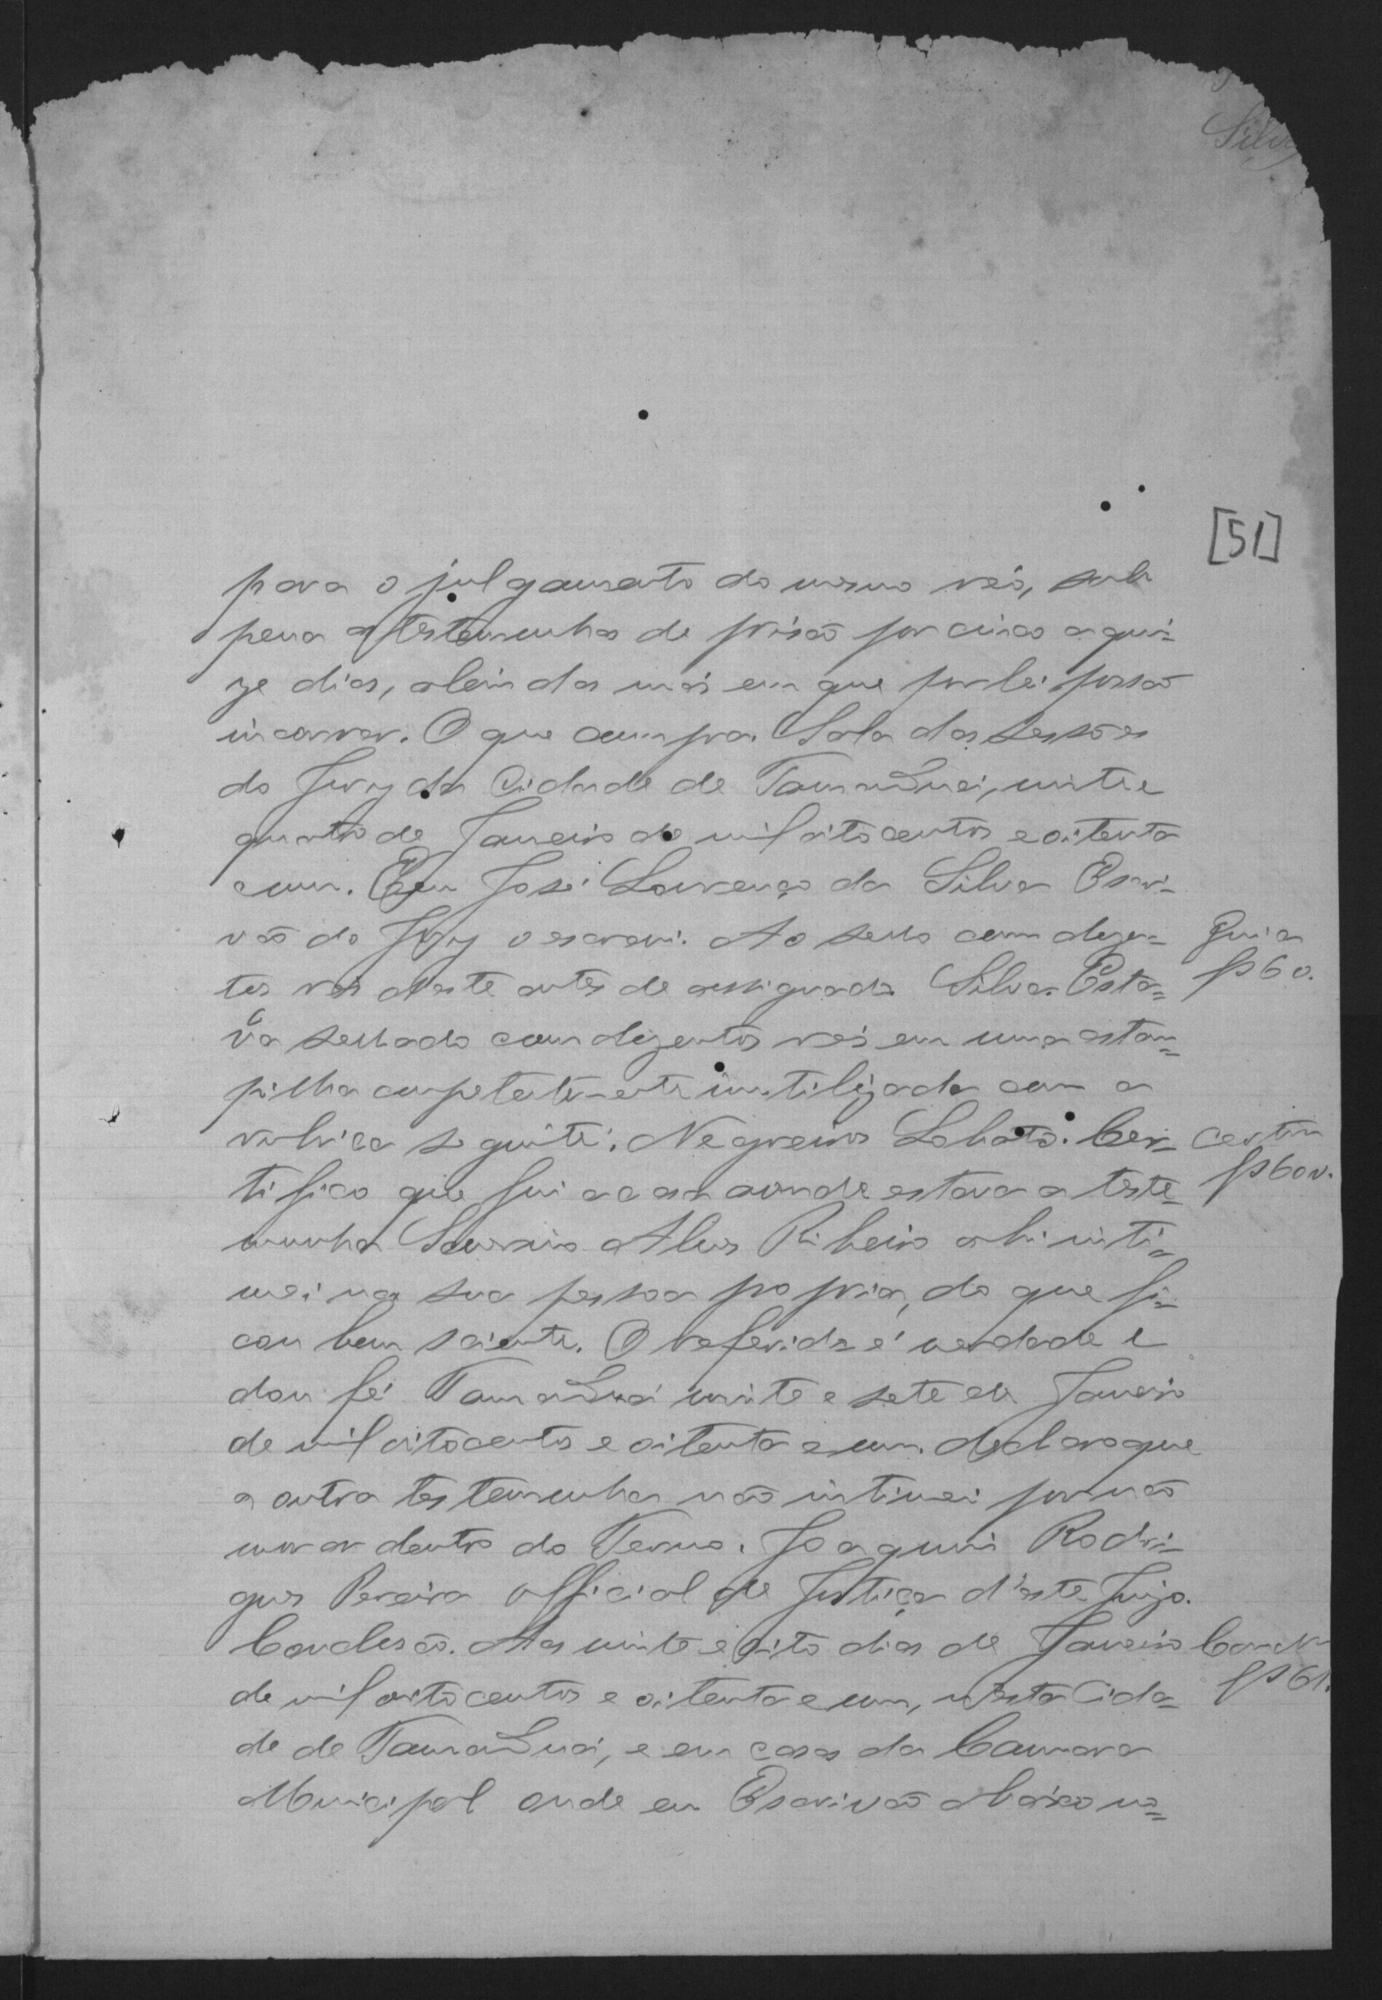 Silva
[51]
para o julgamento do mesmo réo, sob
pena as testemunhas de prisão por cinco a quin=
ze dias, alem das mais em que por lei possão
incorrer. O que cumpra. Sala das sessões
do Jury da Cidade de Tamanduá, vinte e
quatro de Janeiro de mil oitocentos e oitenta
e um. Eu José Lourenço da Silva Escri=
vão do Jury o escrevi. Ao sello com duzen=
tos réis deste antes de assignado. Silva. Esta=
va sellado com duzentos reis em uma estam=
pilha competentemente inutilizada com a
rubrica seguinte: Negreiros Lobato. Cer=
tifico que fui a casa aonde estava a teste=
munha Alves Ribeiro ahi inti=
mei na sua pessoa propria, do que fi=
cou bem sciente. O referido é verdade e
dou fé Tamanduá vinte e sete de Janeiro
de mil oitocentos e oitenta e um. declaro que
a outra testemunha não intimei por não
morar dentro do Termo. Joaquim Rodri=
gues Pereira official de Justiça d'este Juizo.
Conclusão. Aos vinte e oito dias de Janeiro
de mil oitocentos e oitenta e um, nesta Cida=
de de Tamanduá, e em casas da Camara
Municipal onde eu Escrivão abaixo no=
Guia
fs 60.
Certam
fs 60 v.
fs 61.